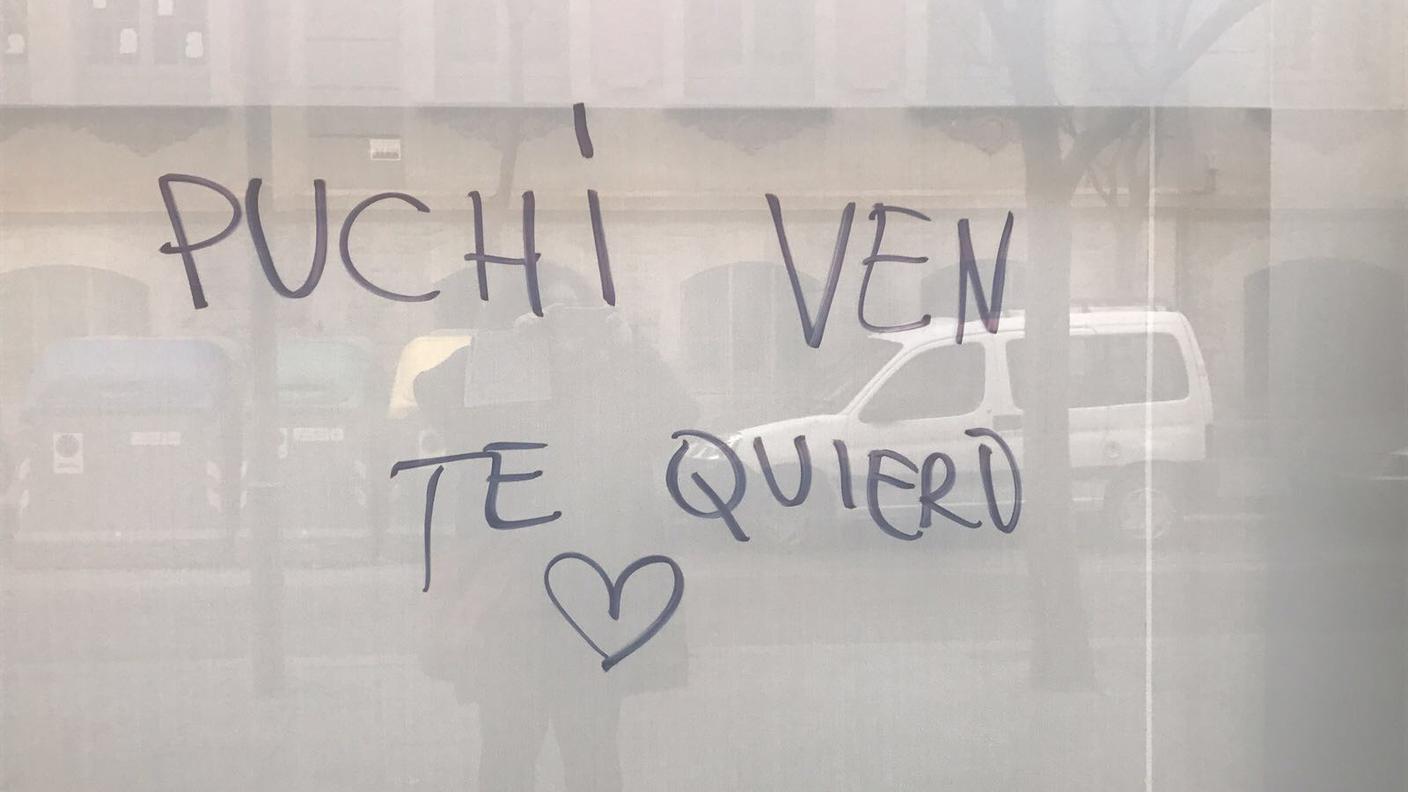 PUCHI VEN
TE QUIERO